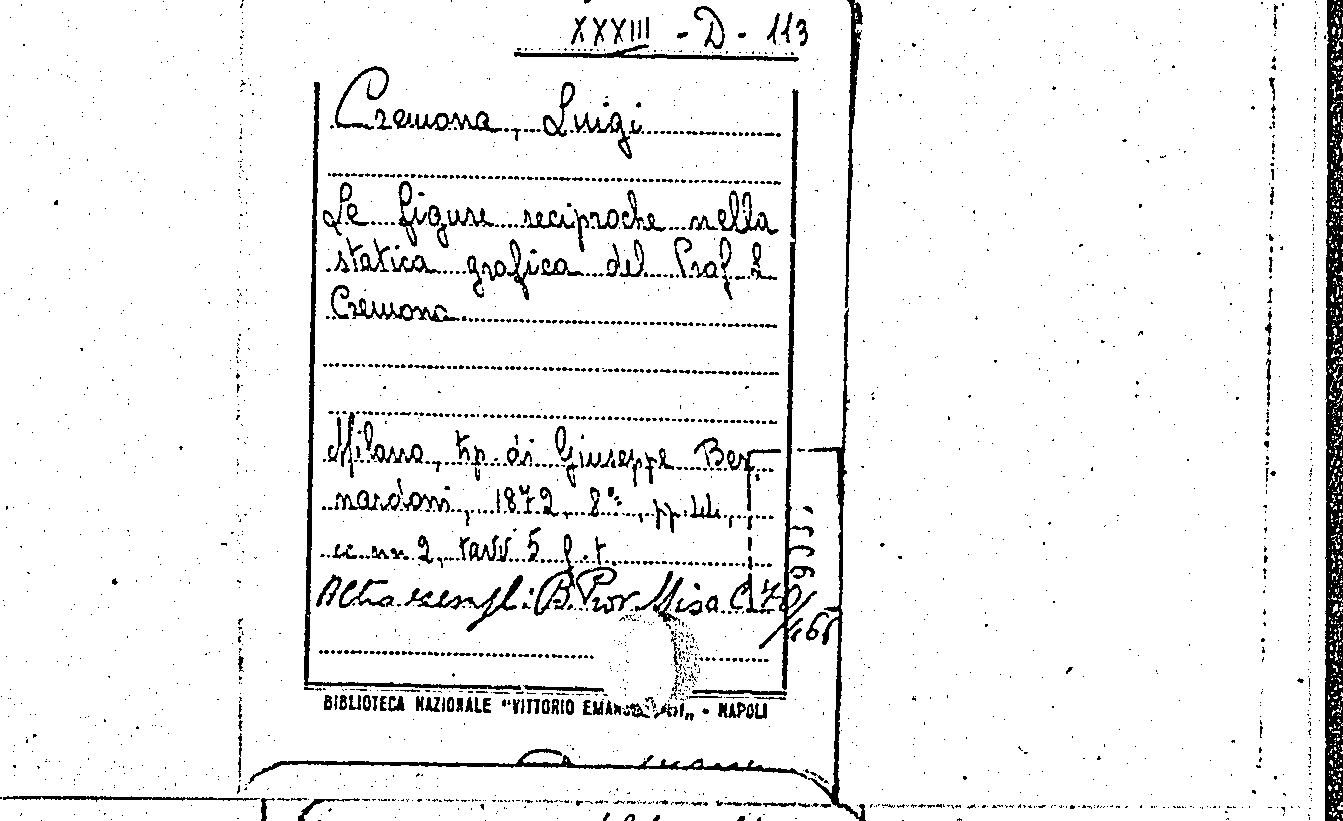 XXXIII - D - 113
Cremona, Luigi
Le figure reciproche nella
statica grafica del Prof L
Cremona.
Milano, tip. di Giuseppe Ber,
nardoni, 1872, 8°, pp. 44,
cc nn 2, tavv 5 f. t.
Altro esempl: B. Prov. Misc C. 70/
/466
BIBLIOTECA NAZIONALE "VITTORIO - NAPOLI